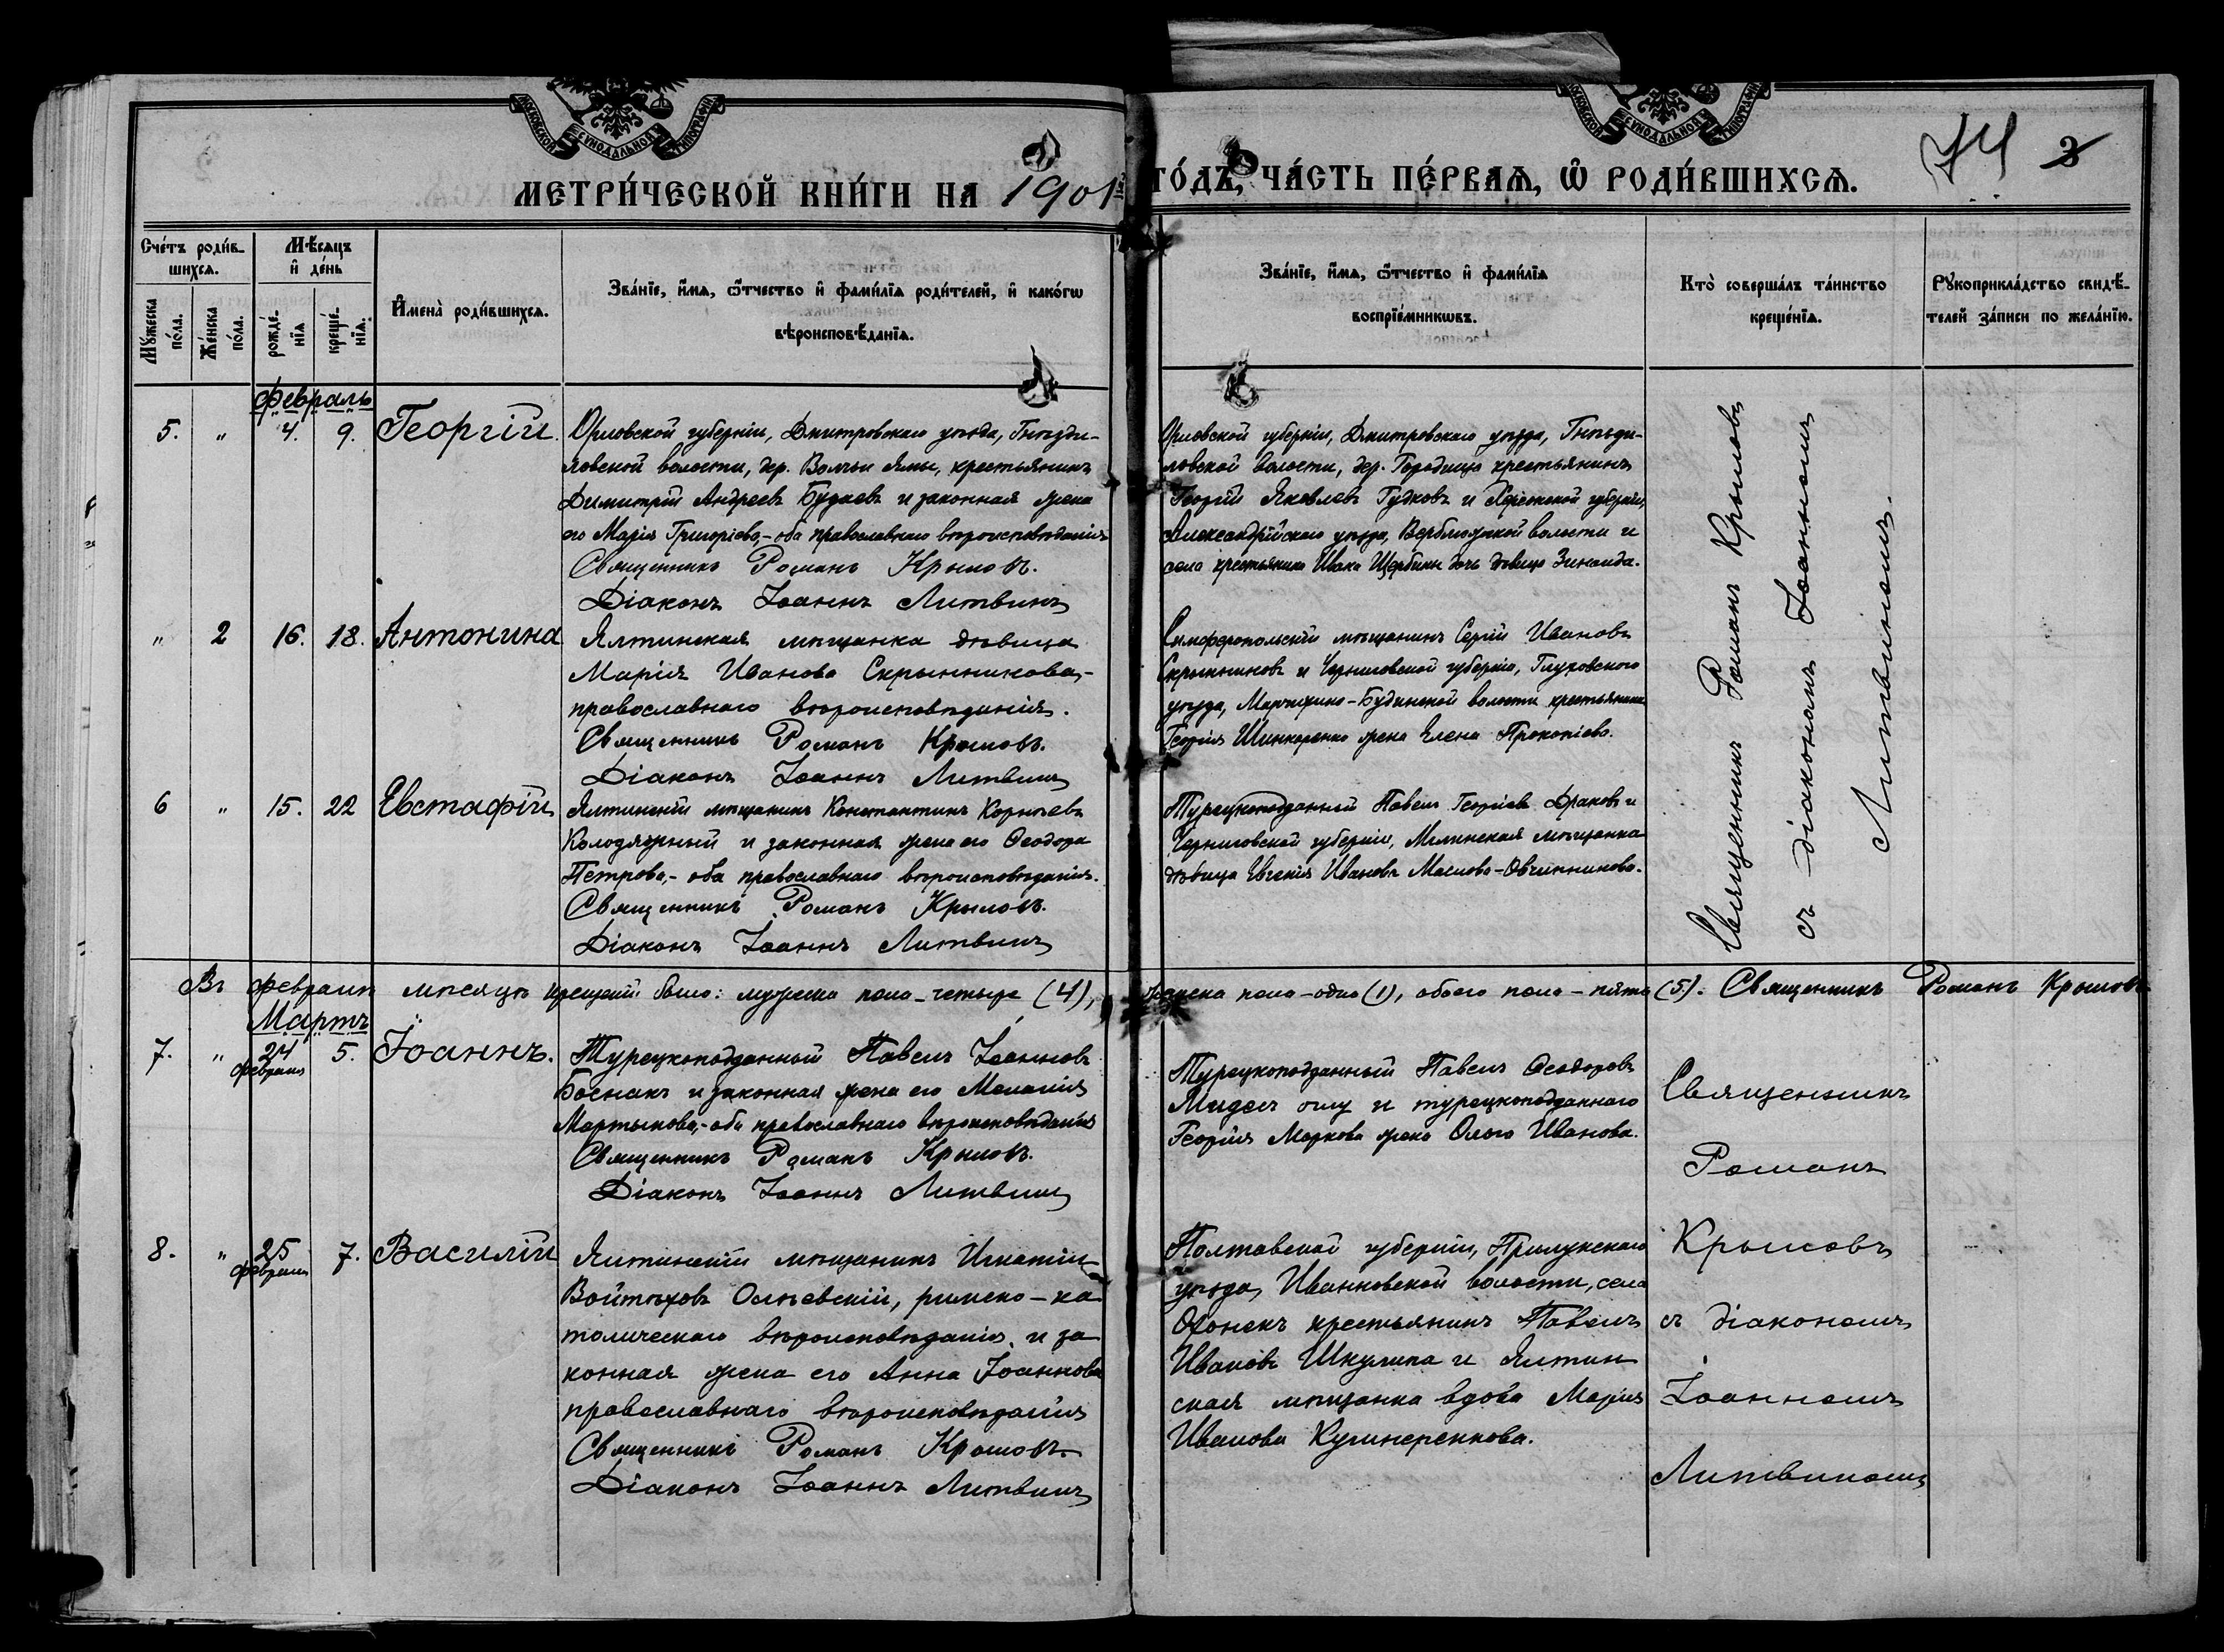 МОСКОВСКОЙ СѴНОДАЛЬНОЙ ТИПОГРАФІИ
МОСКОВСКОЙ СѴНОДАЛЬНОЙ ТИПОГРАФІИ
МЕТРИ́ЧЕСКОЙ КНИ́ГИ НА 1901й
ГО́ДЪ, ЧА́СТЬ ПЕ́РВАѦ, Ѡ҆ РОДИ́ВШИХСѦ.
74 3
Сче́тъ роди́в-
шихсѧ.
Мꙋ́жеска по́ла.
Же́нска по́ла.
Мѣ́сѧцъ
и҆ де́нь
рожде́-
нїѧ
креще́-
нїѧ.
И҆мена̀ роди́вшихсѧ.
Зва́нїе, и҆́мѧ, ѻ҆́тчество и҆ фами́лїѧ роди́телей, и҆ како́гѡ
вѣроисповѣ́данїѧ.
Зва́нїе, и҆́мѧ, ѻ҆́тчество и҆ фами́лїѧ
воспрїе́мникѡвъ.
Кто̀ соверша́лъ та́инство
креще́нїѧ.
Рꙋкоприкла́дство свидѣ́-
телей за́писи по жела́нїю.
Февраль
5. " 4. 9. Георгій.
Орловской губерніи, Дмитровскаго уѣзда, Гнѣзди-
ловской волости, дер. Волчьи Ямы, крестьянинъ
Димитрій Андреевъ Будаевъ и законная жена
его Марія Григоріева,- оба православнаго вѣроисповѣданія
Священникъ Романъ Крыловъ.
Діаконъ Іоаннъ Литвинъ
Орловской губерніи, Дмитровскаго уѣзда, Гнѣзди-
ловской волости, дер. Городище крестьянинъ
Георгій Яковлевъ Гудковъ и Херсонской губерніи,
Александрійскаго уѣзда, Верблюжской волости и
села крестьянина Ивана Щербины дочь дѣвица Зинаида.
Священникъ Романъ Крыловъ
съ діакономъ Іоанномъ
Литвиномъ.
" 2 16. 18. Антонина
Ялтинская мѣщанка дѣвица
Марія Иванова Скрынникова,-
православнаго вѣроисповѣданія.
Священникъ Романъ Крыловъ.
Діаконъ Іоаннъ Литвинъ
Симферопольскій мѣщанинъ Сергій Ивановъ
Скрынниковъ и Черниговской губерніи, Глуховского
уѣзда, Марчихино-Будинской волости крестьянина
Георгія Шинкаренко жена Елена Прокопіева.
6 " 15. 22 Евстафій
Ялтинскій мѣщанинъ Константинъ Корнѣевъ
Колодяжный и законная жена его Ѳеодора
Петрова,- оба православнаго вѣроисповѣданія.
Священникъ Романъ Крыловъ.
Діаконъ Іоаннъ Литвинъ
Турецкоподданный Павелъ Георгіевъ Драковъ и
Черниговской губерніи, Мглинская мѣщанка
дѣвица Евгенія Иванова Маслова-Овчинникова.
Въ февралѣ мѣсяцѣ крещеній было: мужеска пола - четыре (4), женска пола - одно (1), обоего пола - пять (5). Священникъ Романъ Крыловъ
Мартъ
7. " 24 февраля 5. Іоаннъ.
Турецкоподданный Павелъ Іоанновъ
Боснакъ и законная жена его Меланія
Мартынова,- оба православнаго вѣроисповѣданія
Священникъ Романъ Крыловъ.
Діаконъ Іоаннъ Литвинъ
Турецкоподданный Павелъ Ѳеодоровъ
оглу и турецкоподданнаго
Георгія Маркова жена Ольга Иванова.
Священникъ
Романъ
Крыловъ
съ діакономъ
Іоанномъ
Литвиномъ
8. " 25 февраля 7. Василій
Ялтинскій мѣщанинъ Игнатій
Войтѣховъ Олѣевскій, римско-ка
толическаго вѣроисповѣданія и за
конная жена его Анна Іоаннова
православнаго вѣроисповѣданія
Священникъ Романъ Крыловъ
Діаконъ Іоаннъ Литвинъ
Полтавской губерніи, Прилукскаго
уѣзда, Иванковской волости, села
крестьянинъ Павелъ
Ивановъ Шкулипа и Ялтин
ская мѣщанка вдова Марія
Иванова